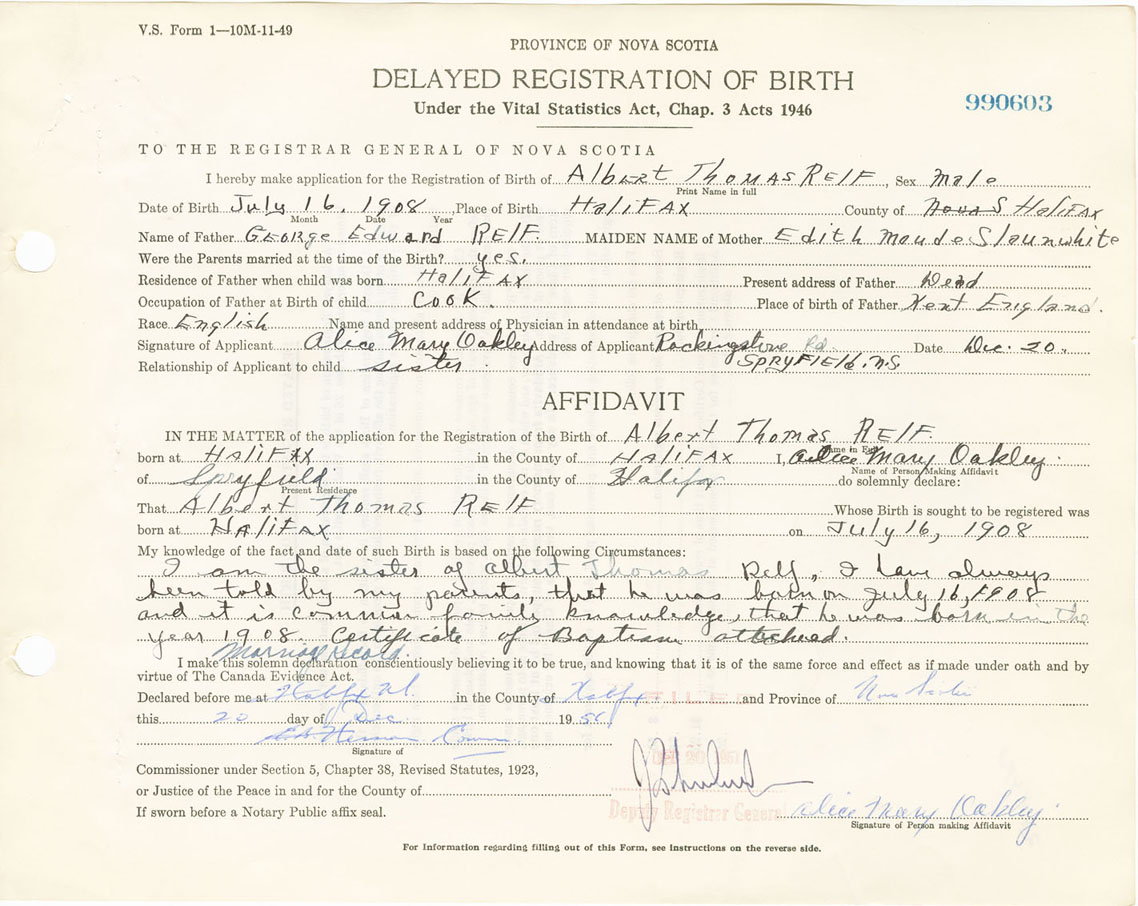 V.S. Form 1—10M-11-49
PROVINCE OF NOVA SCOTIA
DELAYED REGISTRATION OF BIRTH
Under the Vital Statistics Act, Chap. 3 Acts 1946
990603
TO THE REGISTRAR GENERAL OF NOVA SCOTIA
I hereby make application for the Registration of Birth of Albert Thomas Relf, Sex Male
Print Name in full
Date of Birth July 16, 1908, Place of Birth Halifax County of Nova S Halifax
Month Date Year
Name of Father George Edward Relf. MAIDEN NAME of Mother Edith Maude Slaunwhite
Were the Parents married at the time of the Birth? yes.
Residence of Father when child was born Halifax Present address of Father Dead
Occupation of Father at Birth of child Cook. Place of birth of Father Kent England.
Race English Name and present address of Physician in attendance at birth
Signature of Applicant Alice Mary Oakley Address of Applicant Rockingstone Rd. Date Dec. 20.
Relationship of Applicant to child sister. Spryfield. N.S.
AFFIDAVIT
IN THE MATTER of the application for the Registration of the Birth of Albert Thomas Relf.
Name in Full
born at Halifax in the County of Halifax I, Alice Mary Oakley.
Name of Person Making Affidavit
of Spryfield in the County of Halifax do solemnly declare:
Present Residence
That Albert Thomas Relf Whose Birth is sought to be registered was
born at Halifax on July 16, 1908
My knowledge of the fact and date of such Birth is based on the following Circumstances:
I am the sister of Albert Thomas Relf, I have always
been told by my parents, that he was born on July 16, 1908
and it is common family knowledge, that he was born in the
year 1908. Certificate of Baptism attached.
Marriage record.
I make this solemn declaration conscientiously believing it to be true, and knowing that it is of the same force and effect as if made under oath and by
virtue of The Canada Evidence Act.
Declared before me at Halifax N.S. in the County of Halifax and Province of Nova Scotia
this 20 day of Dec 195
Signature of
FILED
DEC 20 1951
Commissioner under Section 5, Chapter 38, Revised Statutes, 1923,
or Justice of the Peace in and for the County of
Deputy Registrar General
Alice Mary Oakley.
If sworn before a Notary Public affix seal.
Signature of Person making Affidavit
For Information regarding filling out of this Form, see instructions on the reverse side.